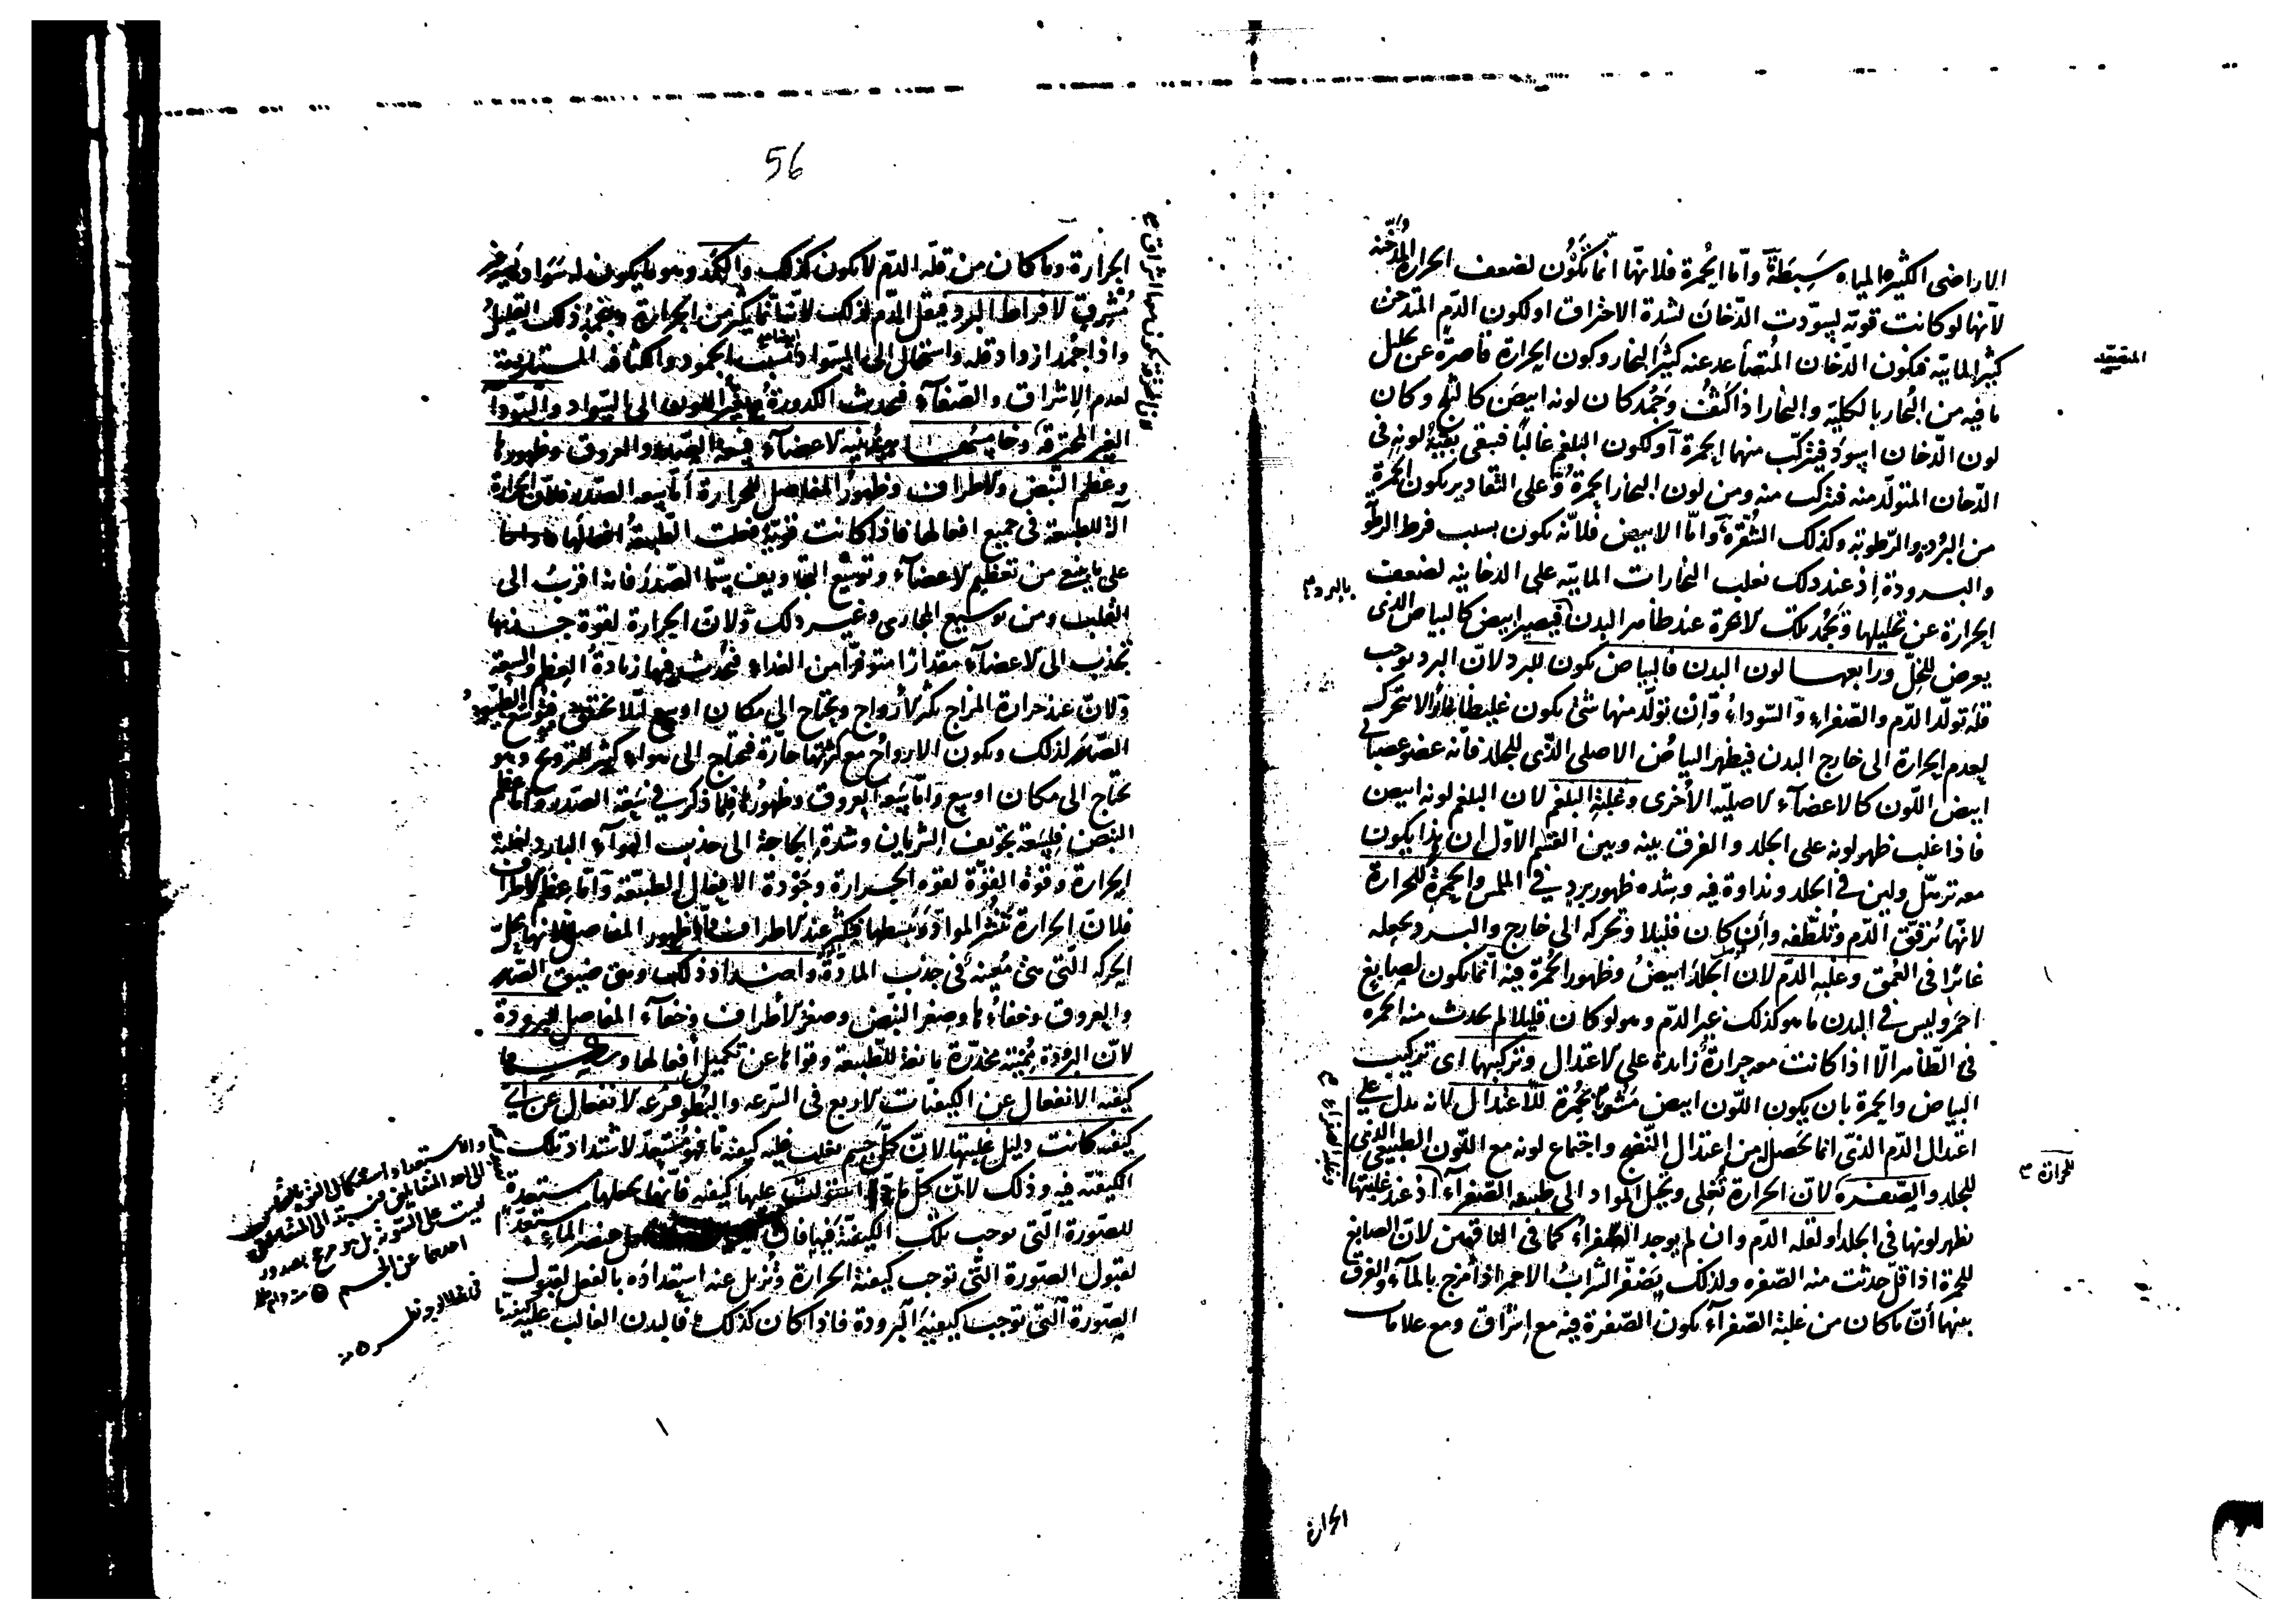 الاراضى الكثيرة المياه سَبِطَةً واما الحمرة فلانها انما تكون لضعف الحرارة المُدخّنه
لانها لو كانت قوية لسوّدت الدّخان لشدة الاحتراق او لكون الدّم المتدخن
كثير المايّة فيكون الدّخان المتصاعد عنه كثير البخار وكون الحرارة قاصرة عن تحليل
المتصعّد
ما فيه من البخار بالكلية والبخار اذا كثف وجَمُد كان لونه ابيض كالثلج وكان
لون الدّخان اسود فيتركّب منهما الحمرة او لكون البلغم غالبًا فيبقى بقية لونه فى
الدّخان المتولّد منه فيتركب منه ومن لون البخار الحمرة وعلى التقادير يكون الحمرة
من البرد والرّطوبة وكذلك الشقرة واما الابيض فلانه يكون بسبب فرط الرطوبة
والبرودة اذ عند ذلك تغلب البخارات المايّة على الدخانية لضعف
الحرارة عن تحليلها وتجمد تلك الابخرة عند ظاهر البدن فيصير ابيض كالبياض الذى
بالبرد
يعرض للخلّ ورابعها لون البدن فالبياض يكون للبرد لان البرد يوجب
قلة تولّد الدّم والصّفراء والسّوداء وان تولّد منها شئ يكون غليظا غائرا لا يتحرك
لعدم الحرارة الى خارج البدن فيظهر البياض الاصلى الّذى للجلد فانه عضو عصبانى
ابيض اللّون كالاعضاء الاصليّة الأخرى وغلبة البلغم لان البلغم لونه ابيض
فاذا غلب ظهر لونه على الجلد والفرق بينه وبين القسم الاوّل ان هذا يكون
معه ترهّل ولين فى الجلد ونداوة فيه وشدة ظهور برد فى الملمس والحمرة للحرارة
لانها تُرقّق الدّم وتلطّفه وان كان قليلا وتحركه الى خارج والبرد يجعله
غائرا فى العمق وغلبة الدّم لان الجلد ابيض وظهور الحمرة فيه انما يكون لصابغ
احمر وليس فى البدن ما هو كذلك غير الدّم وهو لو كان قليلا لم يحدث منه الحمرة
فى الظاهر الّا اذا كانت معه حرارة زايدة على الاعتدال وتركيبها اى تركيب
البياض والحمرة بان يكون اللّون ابيض مَشُوبًا بحُمرة للاعتدال لانه يدل على
اعتدال الدّم الذى انما يحصل من اعتدال النّضج واجتماع لونه مع اللّون الطبيعى الذى
للجلد والصفرة لان الحرارة تُغلى وتحيل المواد الى طبيعة الصّفراء اذ عند غلبتها
للحرارة
يظهر لونها فى الجلد او لقلة الدّم وان لم يوجد الصفراء كما فى الناقهين لان الصابغ
للحمرة اذا قلّ حدثت منه الصّفرة ولذلك يَصْفَرّ الشراب الاحمر اذا مُزج بالماء والفرق
بينهما أنّ ما كان من غلبة الصّفراء يكون الصّفرة فيه مع اشراق ومع علامات
الحرارة
56
الحرارة وما كان من قلة الدّم لا يكون كذلك والكَمِد وهو ما يكون له سَوَاد يَسير غير
مُشْرِق لافراط البرد فيقلّ الدّم لذلك لانه انما يكثر من الحرارة ويجمُدُ ذلك القليلُ
واذا جَمُد ازداد قله واستحال الى السّواد بسبب الجمود والتكاثف المستلزمة
لعدم الاشراق والصّفاء فيحدث الكدورة ويتغير اللون الى السّواد والسّوداء
الغير المحترقة وخامسها هيئة الاعضاء فسعة الصّدر والعروق وظهورها
وعظم النّبض والاطراف وظهور المفاصل للحرارة أمّا سعة الصّدر فلان الحرارة
آلة للطبيعة فى جميع افعالها فاذا كانت قوية فعلت الطبيعة افعالها
على ما ينبغى من تعظيم الاعضاء وتوسّع التجاويف سيّما الصّدر فانه اقرب الى
القلب ومن توسيع المجارى وغير ذلك ولان الحرارة لقوة جذبها
تجذب الى الاعضاء مقدارًا متوفرًا من الغذاء فيحدث فيها زيادة العظم والسعة
ولان عند حرارة المزاج تكثر الارواح ويحتاج الى مكان اوسع لئلا يختنق فتوسّع الطبيعة
الصّدر لذلك ويكون الارواح مع كثرتها حارّة فيحتاج الى هواء كثير للترويح وهو
يحتاج الى مكان اوسع وامّا سَعة العروق وظهورها فلما ذكر فى سَعة الصّدر وامّا عظم
النبض فلِسَعة تجويف الشريان وشدة الحاجة الى جذب الهواء البارد لغلبة
الحرارة وقوة القوّة لقوة الحرارة وجَودة الافعال الطبيعية وامّا عظم الاطراف
فلان الحرارة تنشر الموادّ وتَبسطها فيكثر عند الاطراف وامّا ظهور المفاصل فلانها
الحركة الّتى هى مُعينة فى جذب المادّة واضداد ذلك وهى ضيق الصّدر
والعروق وخفاءُها وصغر النبض وصغر الأطراف وخفاء المفاصل للبرودة
لان البرودة مُميتة مخدّرة مانعة للطّبيعة وقواها عن تكميل افعالها
كيفية الانفعال عن الكيفيّات الاربع فى السّرعة والبُطؤ فسُرعة الانفعال عن اىّ
كيفيّة كانت دليل غلبتها لان كلّ جسم تغلب عليه كيفية ما فهو مُستعدّ لاشتداد تلك
الكيفيّة فيه وذلك لان كلّ مادّة استولت عليها كيفية فانها تجعلها مستعدة
للصّورة الّتى توجب تلك الكيفيّة فيها عنصر الماء مستعدّ
لقبول الصّورة الّتى توجب كيفية الحرارة وتُزيل عنه استعداده بالفعل لقبول
الصّورة الّتى توجب كيفية البرودة فاذا كان كذلك فالبدن الغالب عليه كيفيّة ما